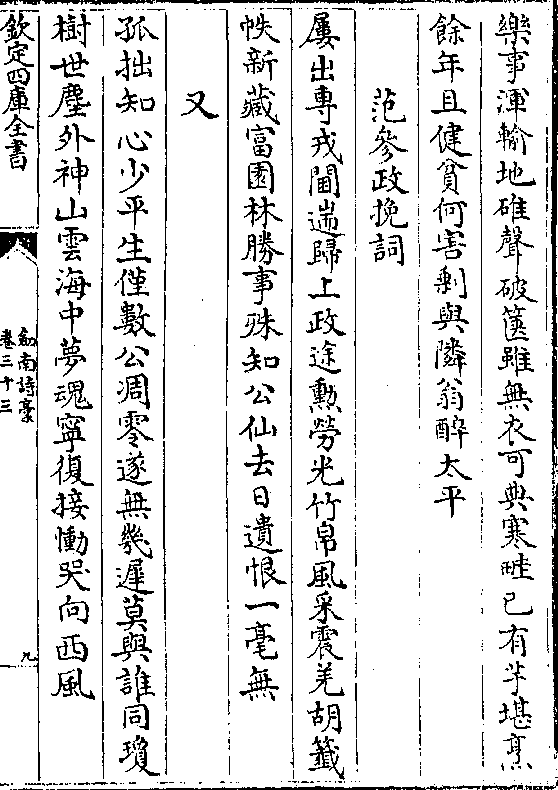 樂事渾輸地碓聲破篋雖無衣可典寒畦已有芋堪烹
餘年且健貧何害剰與隣翁醉太平
范參政挽詞
屢出專戎閫遄歸上政途勲勞光竹帛風采震羌胡籤
帙新藏富園林勝事殊知公仙去日遺恨一毫無
又
孤拙知心少平生僅數公凋零遂無幾遲莫與誰同瓊
樹世塵外神山雲海中夢魂寧復接慟哭向西風
欽定四庫全書
劍南詩稾
卷三十三
九